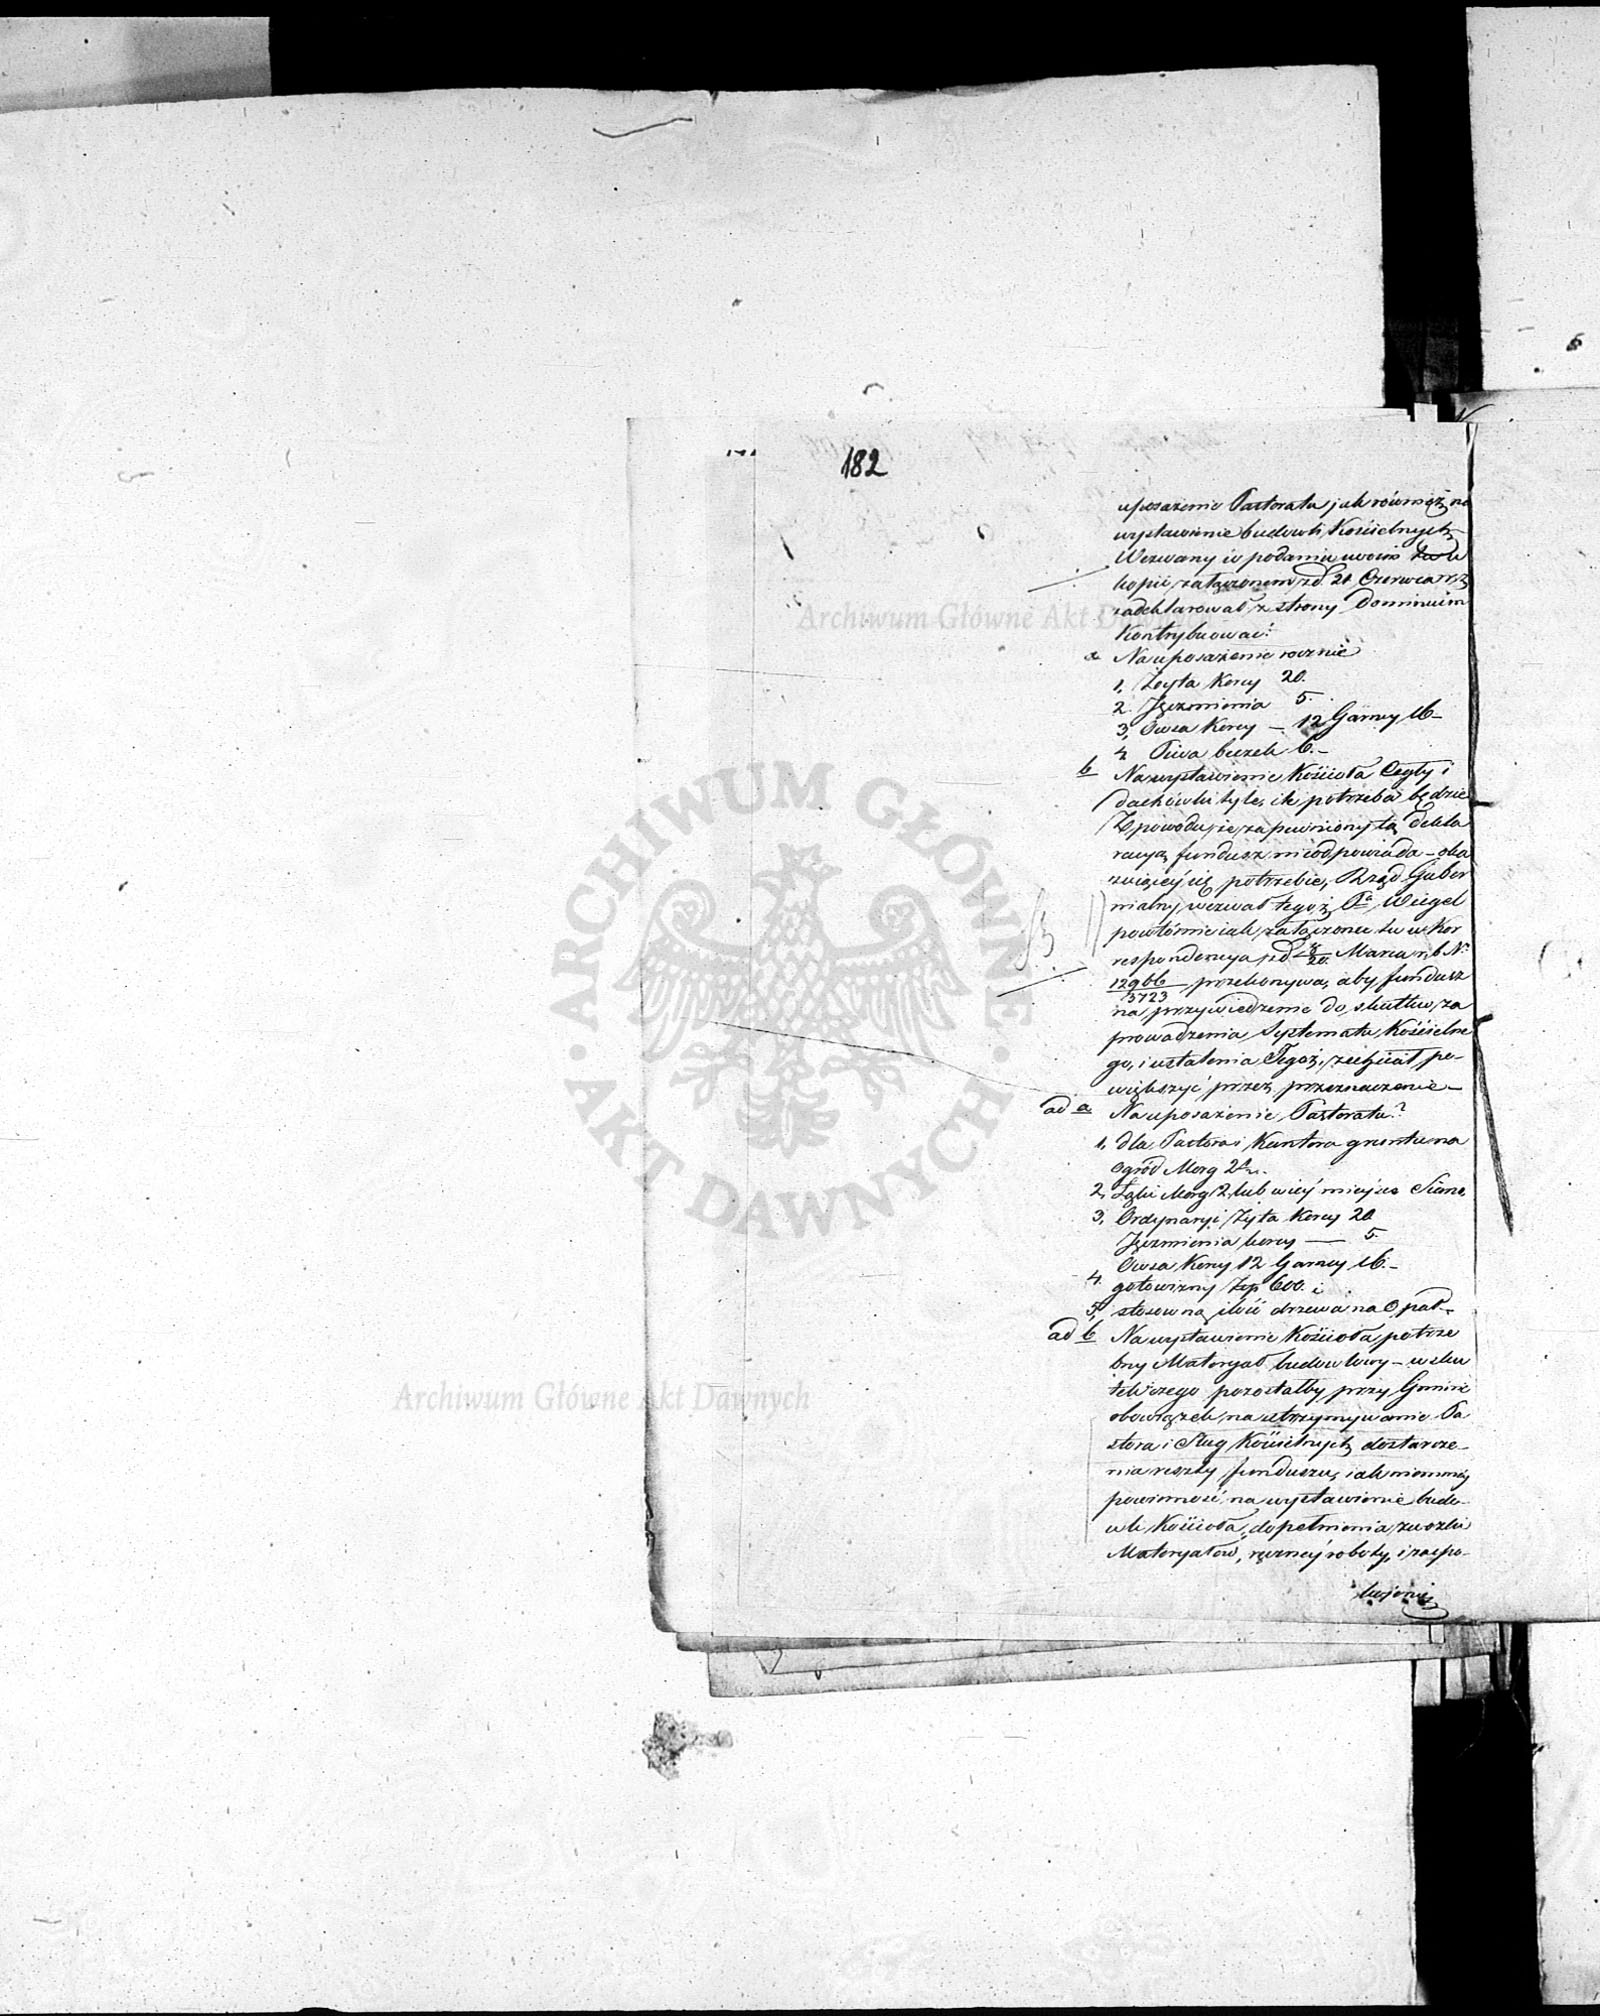 182
uposażenie Pastoratu jak również na
wystawienie budowli Kościelnych
Wezwany w podaniu swoim
kopii załączonem z d. 21 Czerwca r. z.
zadeklarował z strony Dominium
Kontrybuować:
a Na uposażenie rocznie
1, Żyta Korcy 20.
2. Jęczmienia 5.
3, Owsa Korcy — 12 Garncy 16 —
4 Piwa beczek 6. —
b Na wystawienie Kościoła Cegły i
dachówki tyle, ile potrzeba będzie
Z powodu, że zapewniony tą dekla
racyą fundusz nieodpowiada — oka
zującéj się potrzebie, Rząd Guber
nialny wezwał tegoż Pa Weigel
powtórnie iak załączona tu w Kor
respondencya z d. 8/20 Marca r. b. Nr
12966/3723 przekonywa, aby fundusz
na przywiedzenie do skutku, za
prowadzenia Systematu Kościelne
go, i ustalenia Tegoż, zechciał po-
większyć przez przeznaczenie —
ad a Na uposażenie Pastoratu?
1, dla Pastora i Kantora gruntu na
Ogród Morg 2
2, Łąki Morg 2, lub w iéj miejsce Siano,
3, Ordynaryi Żyta Korcy 20
Jęczmienia korcy — 5.
Owsa Korcy 12 Garncy 16. —
4. gotowizny Złp 600. i
5, stosowną ilość drzewa na Opał —
ad b Na wystawienie Kościoła potrze
bny Materyał budowlowy — w sku
tek czego pozostałby przy Gminie
obowiązek, na utrzymywanie Pa
stora i Sług Kościelnych dostarcze-
nia reszty funduszu, iak niemniéj
powinność na wystawienie budo-
wli Kościoła, dopełnienia zwózki
Materyałów, ręcznéj roboty, i zaspo-
kojenie
Archiwum Główne Akt Dawnych
Archiwum Główne Akt Dawnych
ARCHIWUM GŁÓWNE · AKT DAWNYCH ·